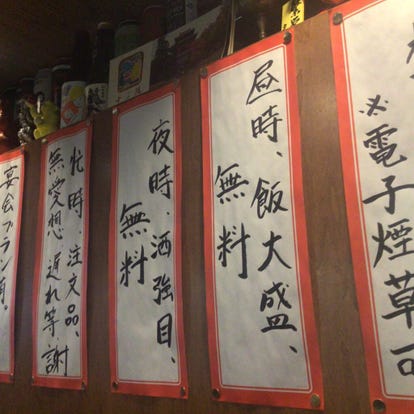 ※電子煙草可
昼時、飯大盛、
無料
夜時、酒強目、
無料
忙時、注文品、
無愛想遅れ等謝
宴会プラン有。